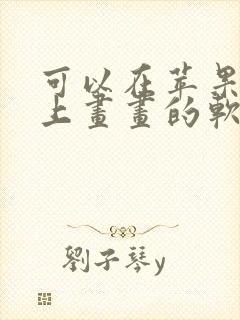 可以在苹果
上畫畫的軟
劉子琴y